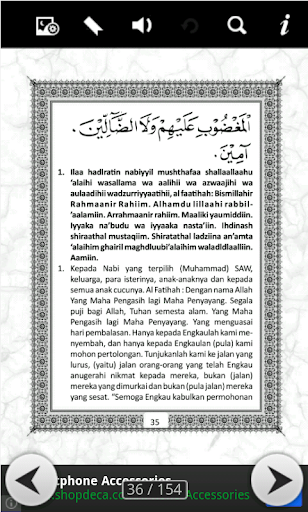 الْمَغْضُوْبِ عَلَيْهِمْ وَلَا الضَّآلِّيْنَ.
آمِيْنَ.
1. Ilaa hadlratin nabiyyil mushthafaa shallaallaahu
'alaihi wasallama wa aalihii wa azwaajihi wa
aulaadihii wadzurriyyaatihii, al faatihah: Bismillahir
Rahmaanir Rahiim. Alhamdu lillaahi rabbil-
'aalamiin. Arrahmaanir rahiim. Maaliki yaumiddiin.
Iyyaka na'budu wa iyyaka nasta'iin. Ihdinash
shiraathal mustaqiim. Shiratathal ladziina an'amta
'alaihim ghairil maghdluubi'alaihim waladldlaalliin.
Aamiin.
1. Kepada Nabi yang terpilih (Muhammad) SAW,
keluarga, para isterinya, anak-anaknya dan kepada
semua anak cucunya. Al Fatihah : Dengan nama Allah
Yang Maha Pengasih lagi Maha Penyayang. Segala
puji bagi Allah, Tuhan semesta alam. Yang Maha
Pengasih lagi Maha Penyayang. Yang menguasai
hari pembalasan. Hanya kepada Engkaulah kami me-
nyembah, dan hanya kepada Engkaulan (pula) kami
mohon pertolongan. Tunjukanlah kami ke jalan yang
lurus, (yaitu) jalan orang-orang yang telah Engkau
anugerahi nikmat kepada mereka, bukan (jalan)
mereka yang dimurkai dan bukan (pula jalan) mereka
yang sesat. "Semoga Engkau kabulkan permohonan
35
tphone Accessories
shopdeca.co Accessories
36 / 154